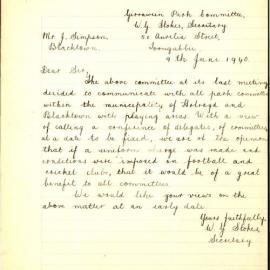 Girraween Park Committee,
W. G. Stokes, Secretary
Mr. J. Simpson, 50 Aurelia Street,
Blacktown. Toongabbie
9th June 1940.
Dear Sir,
The above committee at its last meeting
decided to communicate with all park committees
within the municipality of Holroyd and
Blacktown with playing areas. With a view
of calling a conference of delegates, of committees
at a date to be fixed, we are of the opinion
that if a uniform charge was made and
conditions were imposed on football and
cricket clubs, that it would be of a great
benefit to all committees.
We would like your views on the
above matter at an early date.
Yours faithfully,
W. G. Stokes
Secretary